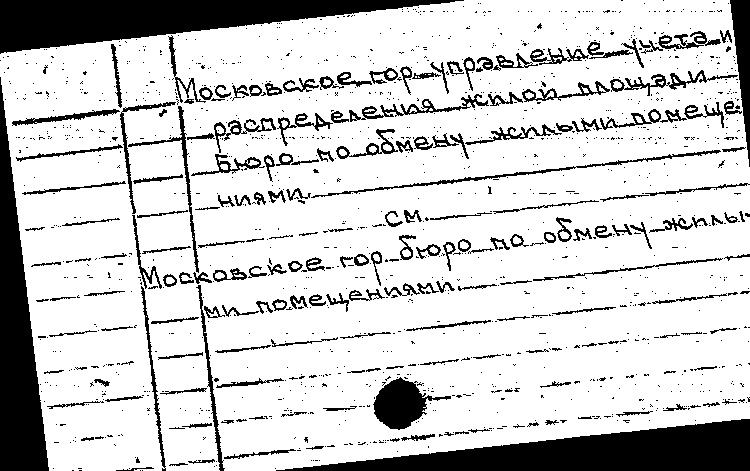 Московское гор. управление учета и
распределения жилой площади
Бюро по обмену жилыми помеще-
ниями.
см.
Московское гор. бюро по обмену жилы-
ми помещениями.